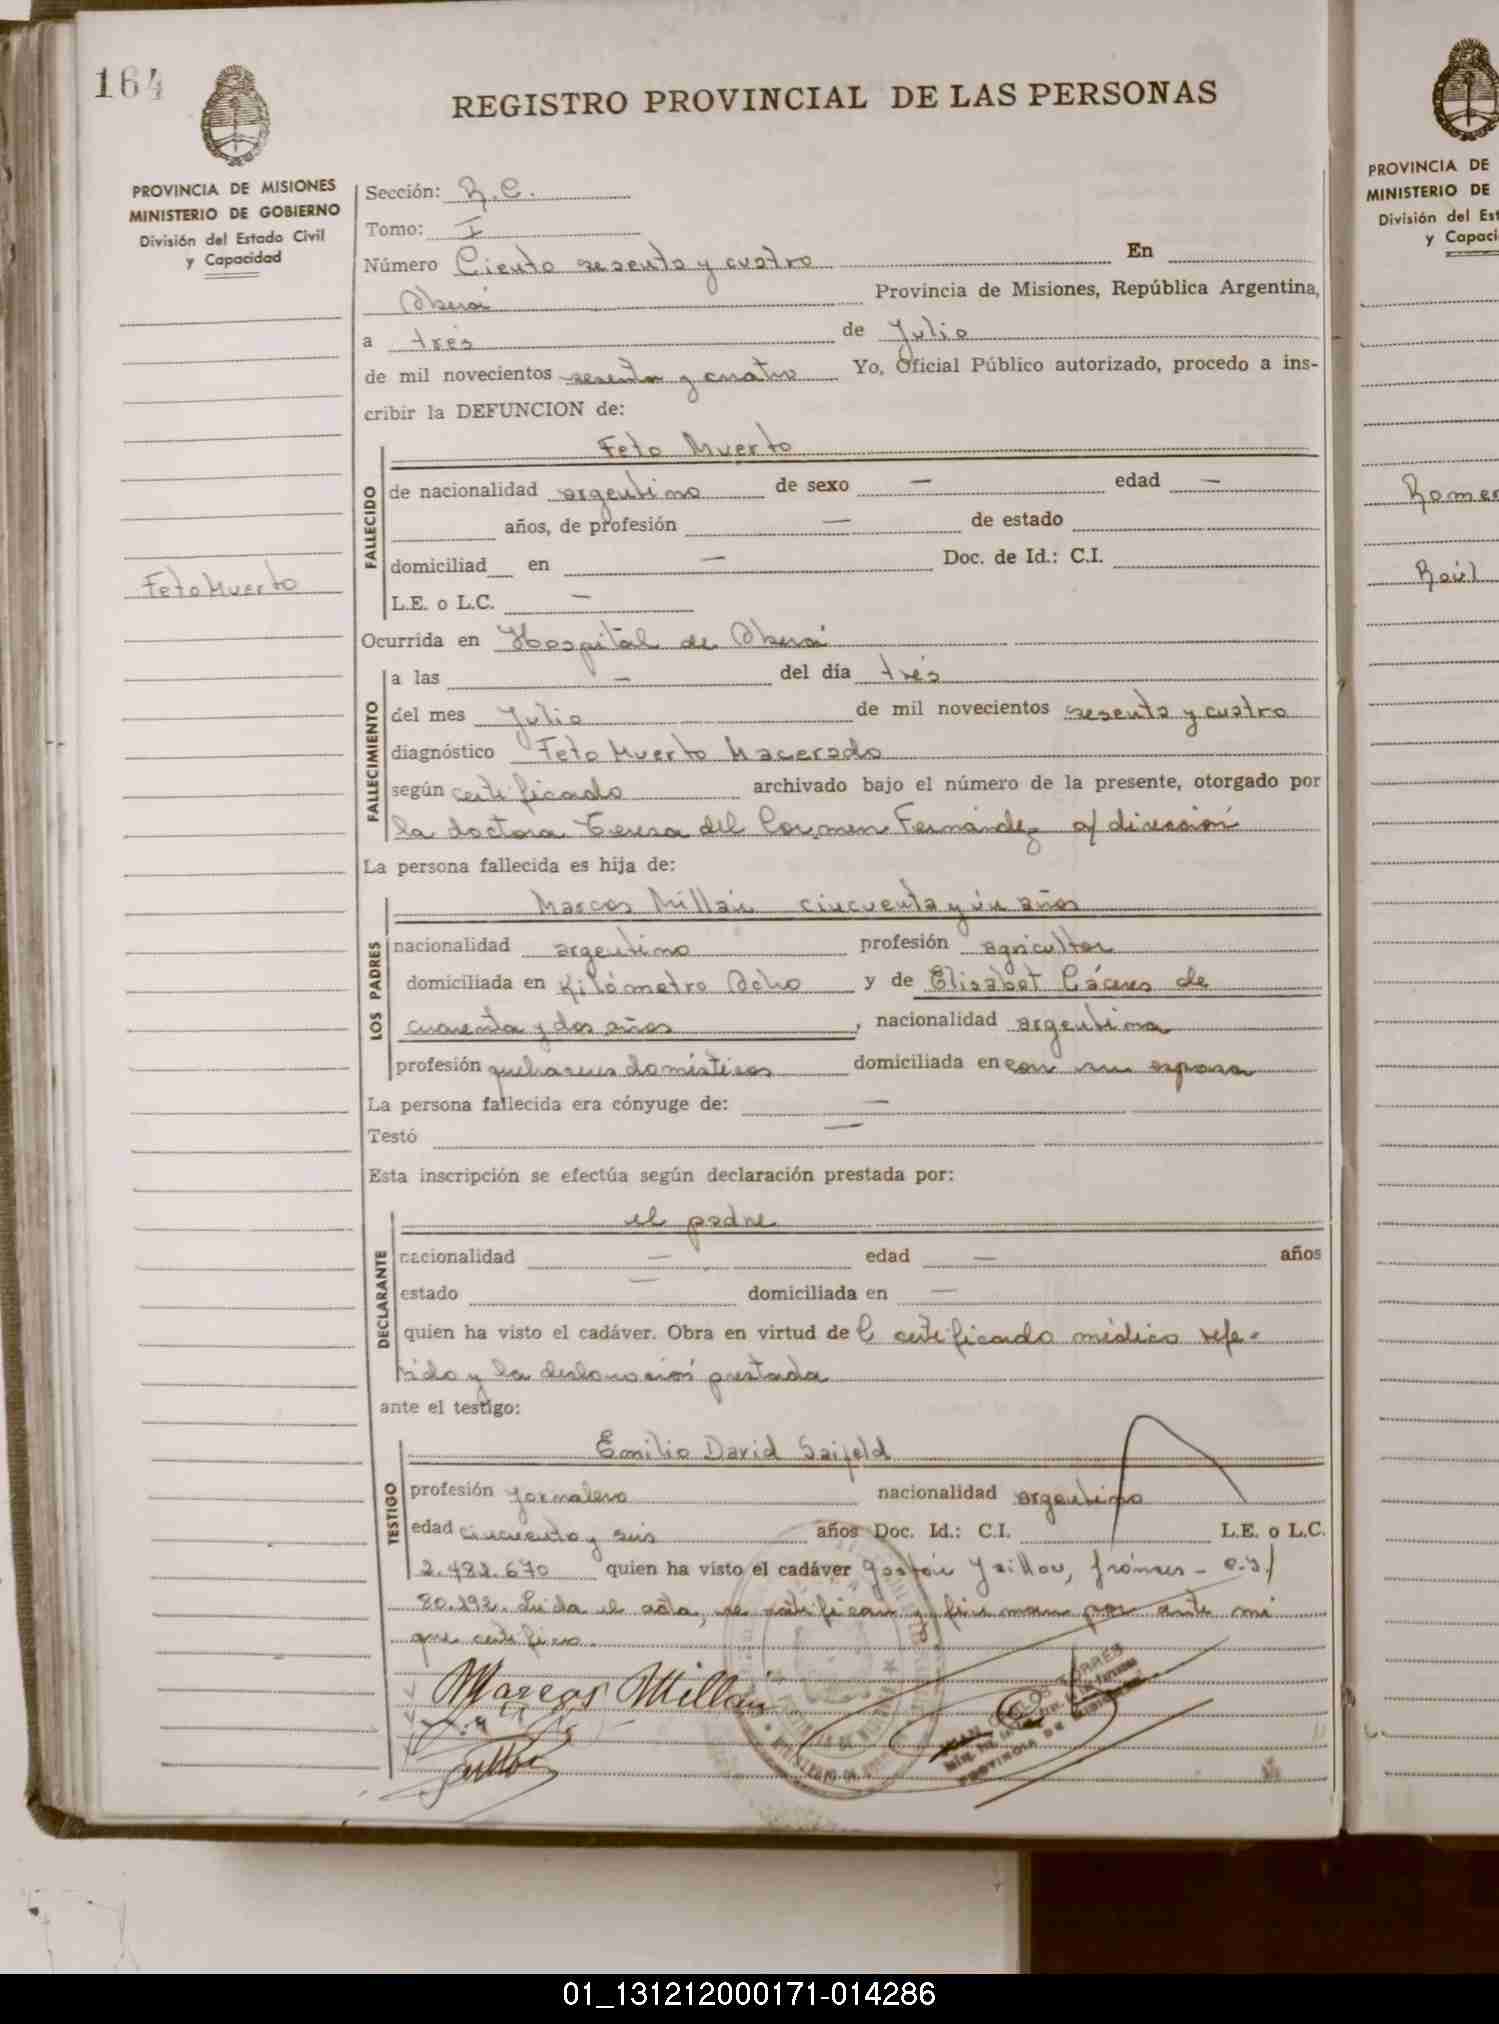 164
REGISTRO PROVINCIAL DE LAS PERSONAS
PROVINCIA DE MISIONES
MINISTERIO DE GOBIERNO
División del Estado Civil
y Capacidad
Feto Muerto
Sección: R.C.
Tomo: I
Número Ciento sesenta y cuatro En
Oberá Provincia de Misiones, República Argentina,
a trés de Julio
de mil novecientos sesenta y cuatro Yo, Oficial Público autorizado, procedo a ins-
cribir la DEFUNCION de:
FALLECIDO
Feto Muerto
de nacionalidad argentino de sexo — edad —
años, de profesión — de estado
domiciliad en — Doc. de Id.: C.I.
L.E. o L.C. —
Ocurrida en Hospital de Oberá
FALLECIMIENTO
a las — del día trés
del mes Julio de mil novecientos sesenta y cuatro
diagnóstico Feto Muerto Macerado
según certificado archivado bajo el número de la presente, otorgado por
la doctora Teresa del Carmen Fernández a/ dirección
La persona fallecida es hija de:
LOS PADRES
Marcos Millan cincuenta y ún años
nacionalidad argentino profesión agricultor
domiciliada en Kilómetro Ocho y de Elisabet Cáceres de
cuarenta y dos años, nacionalidad argentina
profesión quehaceres domésticos domiciliada en con su esposo
La persona fallecida era cónyuge de: —
Testó —
Esta inscripción se efectúa según declaración prestada por:
DECLARANTE
el padre
nacionalidad — edad — años
estado — domiciliada en —
quien ha visto el cadáver. Obra en virtud de l certificado médico refe-
rido y la declaración prestada
ante el testigo:
TESTIGO
Emilio David Saifeld
profesión Jornalero nacionalidad argentino
edad cincuenta y seis años Doc. Id.: C.I. L.E. o L.C.
2.482.670 quien ha visto el cadáver Gastón
80.292. Leída el acta, se ratifican y firman por ante mí
que certifico.
Marcos Millan
JUAN CARLOS TORRES
PROVINCIA DE MISIONES
PROVINCIA DE
MINISTERIO DE
División del Est
y Capaci
Romer
Raúl
01_131212000171-014286